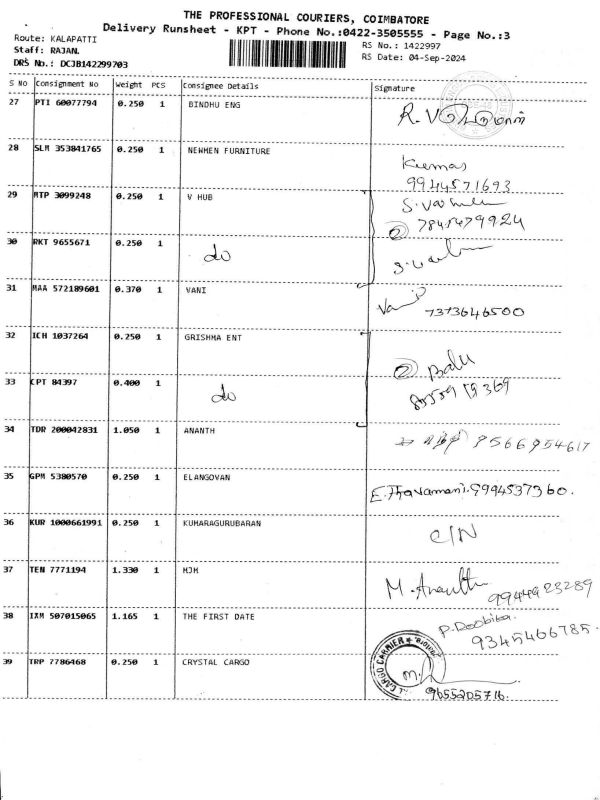 THE PROFESSIONAL COURIERS, COIMBATORE
Delivery Runsheet - KPT - Phone No.:0422-3505555 - Page No.:3
Route: KALAPATTI
RS No.: 1422997
Staff: RAJAN.
RS Date: 04-Sep-2024
DRS No.: DCJB142299703
S NO Consignment No Weight PCS Consignee Details Signature
27 PTI 60077794 0.250 1 BINDHU ENG
28 SLM 353841765 0.250 1 NEWMEN FURNITURE
Kumar
9944571693
29 MTP 3099248 0.250 1 V HUB
② 7845479924
30 RKT 9655671 0.250 1 do
31 MAA 572189601 0.370 1 VANI
Vani 7373646500
32 ICH 1037264 0.250 1 GRISHMA ENT
② Balu
33 CPT 84397 0.400 1 do
34 TDR 200042831 1.050 1 ANANTH 9566954617
35 GPM 5380570 0.250 1 ELANGOVAN E.Thavamani. 9994537360.
36 KUR 1000661991 0.250 1 KUMARAGURUBARAN C/N
37 TEN 7771194 1.330 1 MJM M. Ananth 9944923289
38 IXM 507015065 1.165 1 THE FIRST DATE P. Deebika. 9345466785.
39 TRP 7786468 0.250 1 CRYSTAL CARGO
CARGO CARRIER
9655205716.